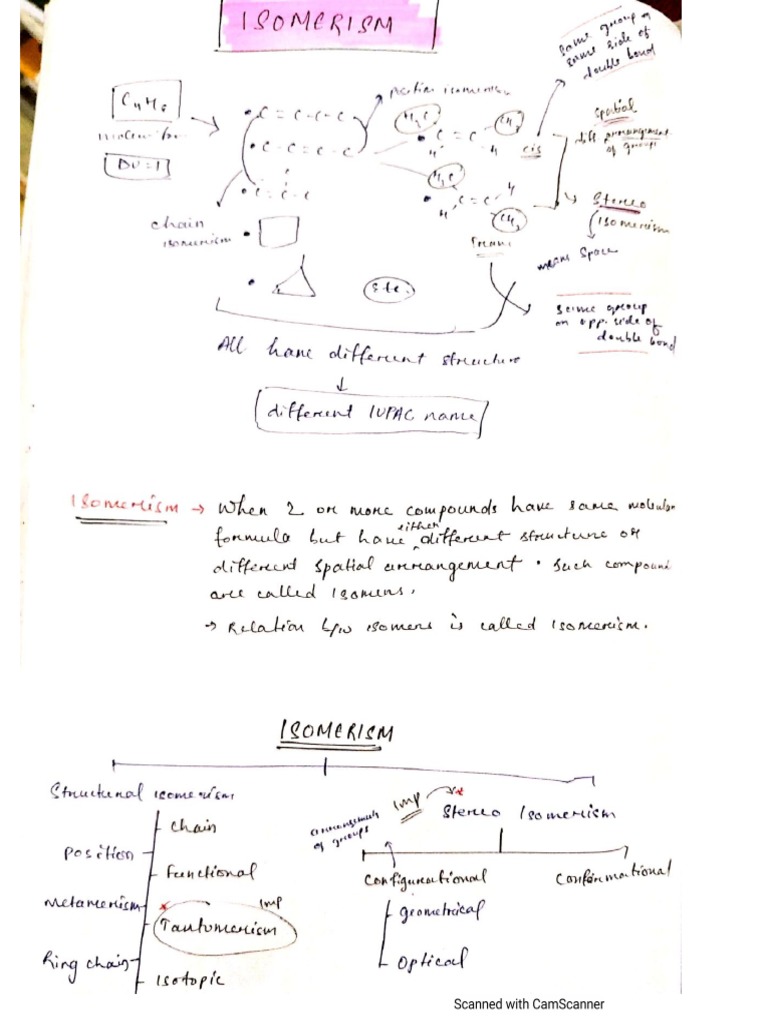 ISOMERISM
same group on
same side of
double bond
C4H8
DU=1
• C = C - C - C
• C - C = C - C
• C = C - C
C
Position isomerism
H3C
CH3
C = C
H
H
cis
H3C
H
C = C
H
CH3
Trans
spatial
diff arrangement
of groups
Stereo
isomerism
means space
chain
isomerism
etc.
same group
on opp. side of
double bond
All have different structure
↓
different IUPAC name
Isomerism → When 2 or more compounds have same molecular
formula but have either different structure or
different spatial arrangement. Such compound
are called Isomers.
→ Relation b/w isomers is called Isomerism.
ISOMERISM
Structural isomerism
Chain
Position
Functional
Metamerism
* Imp
Tautomerism
Ring chain
Isotopic
Imp → *
Stereo Isomerism
arrangement
of groups
Configurational
Conformational
geometrical
Optical
Scanned with CamScanner